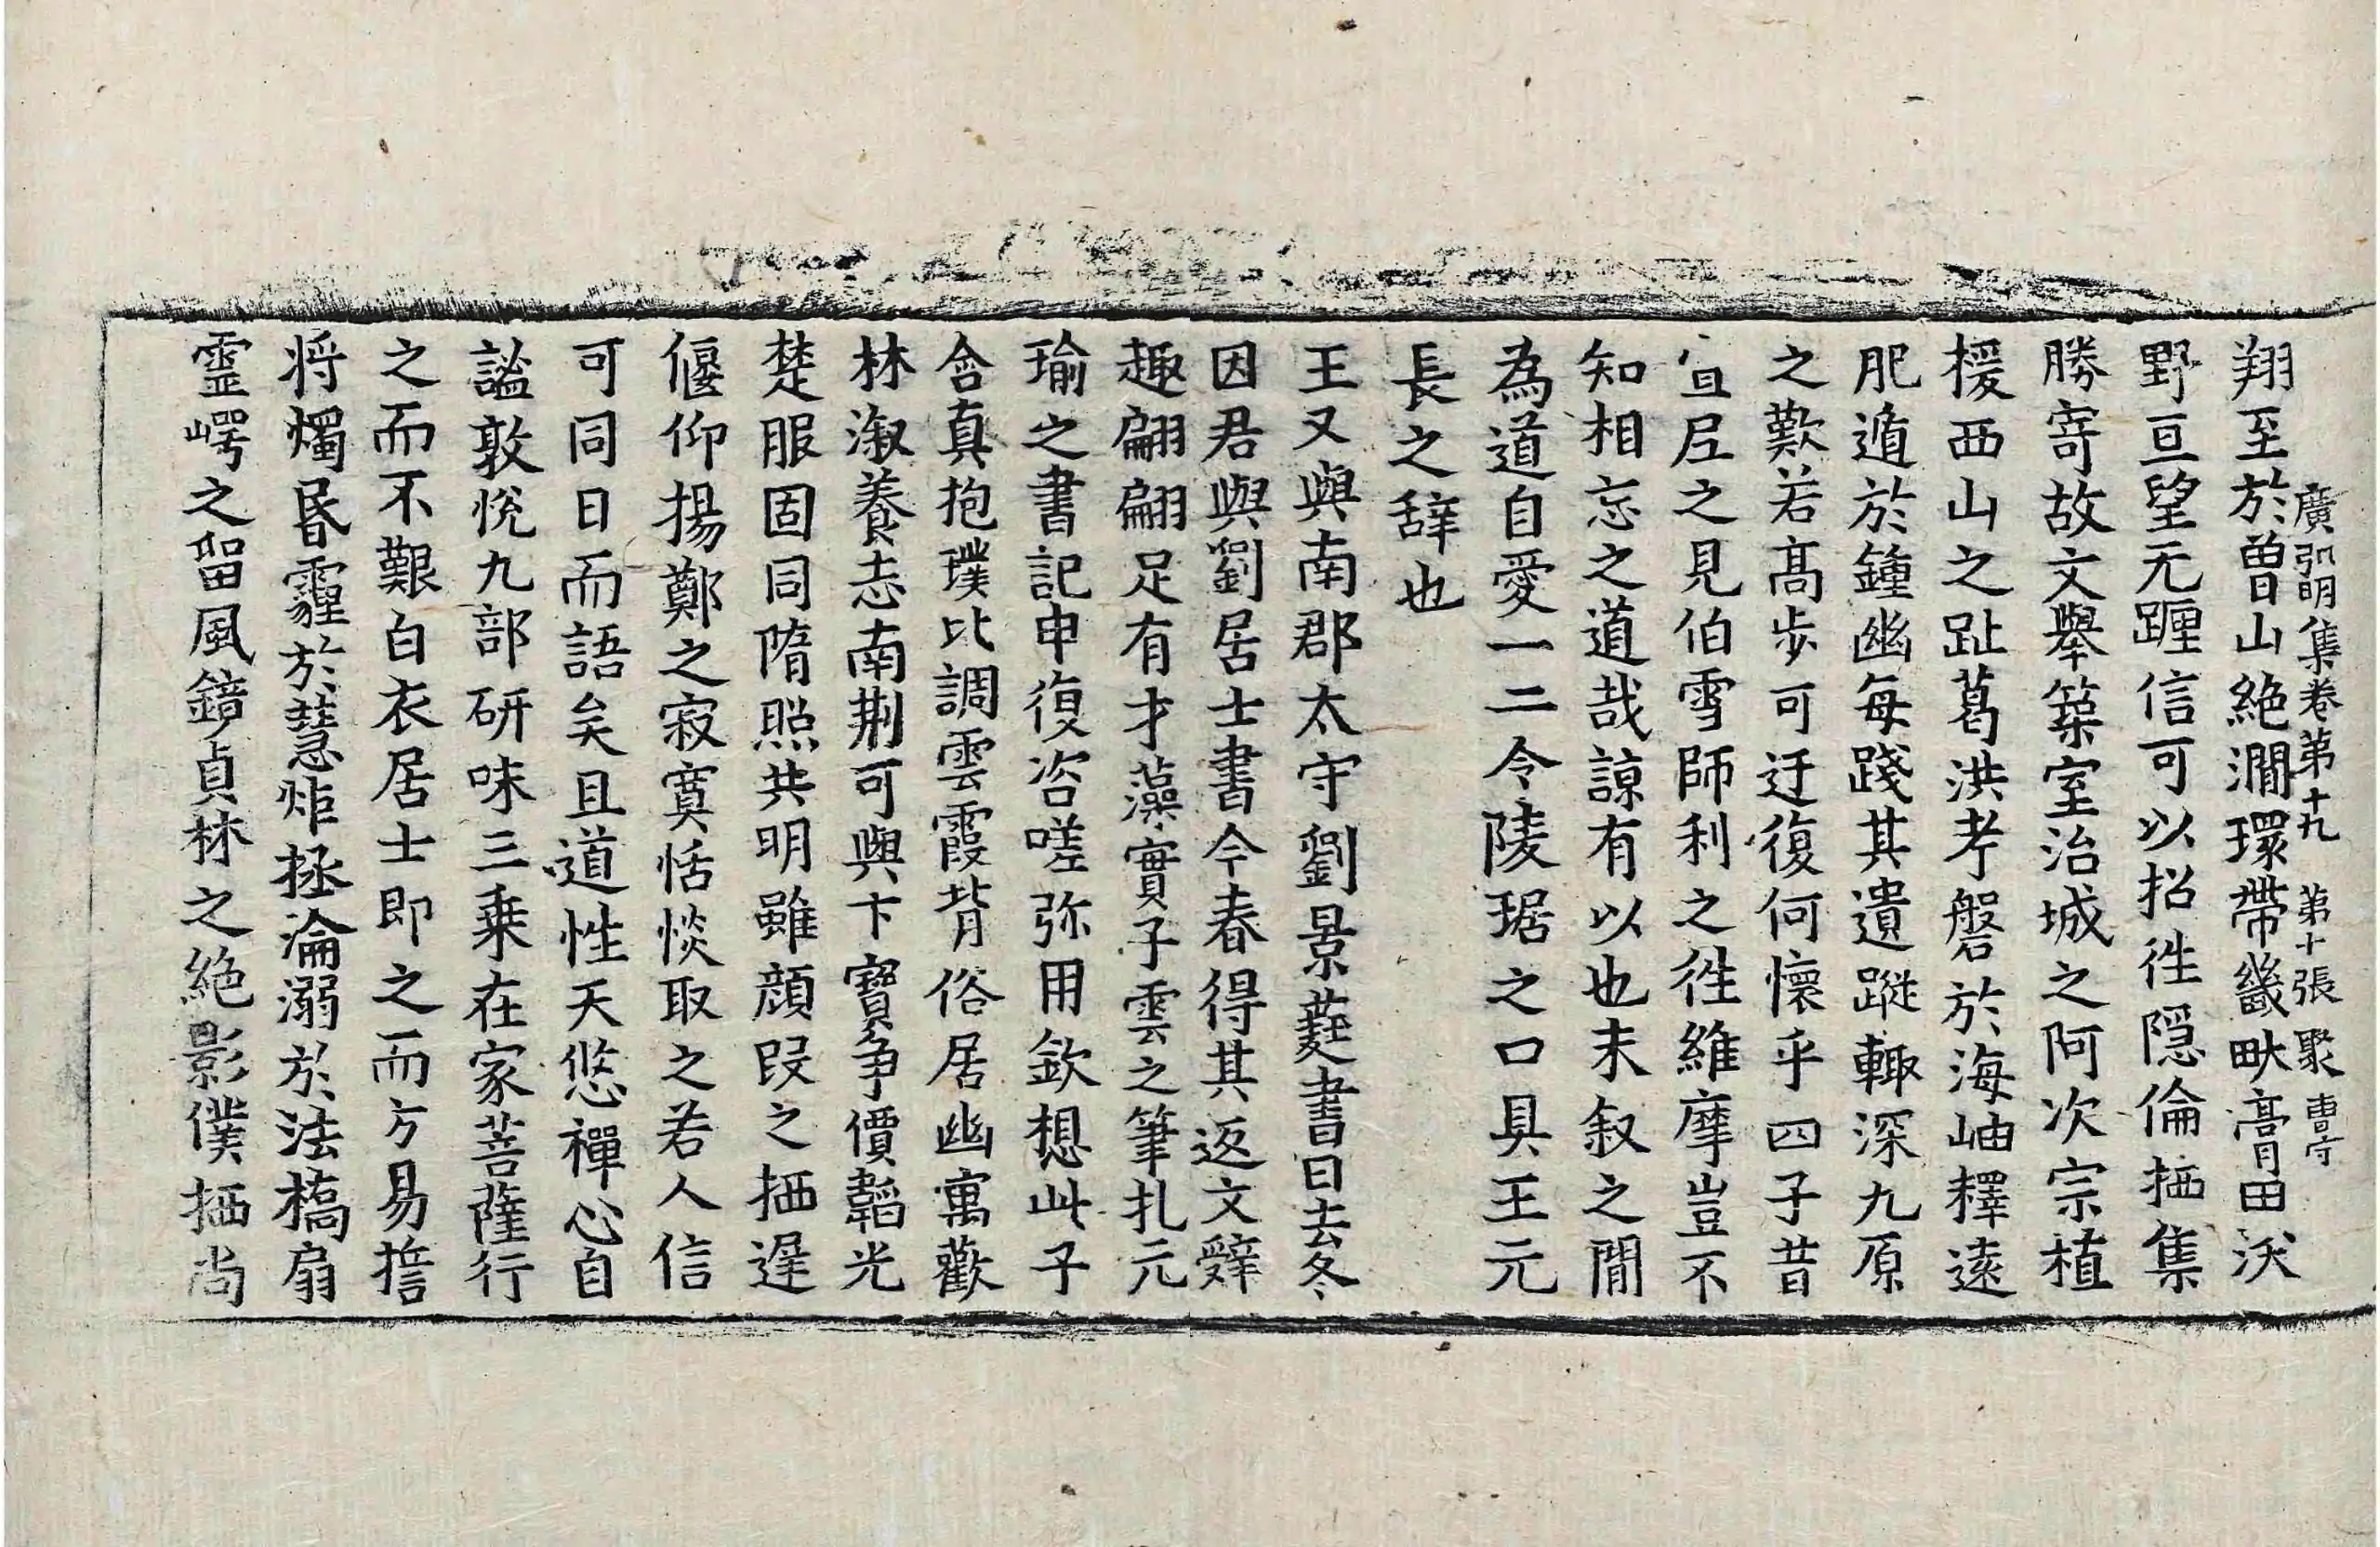 廣弘明集卷第十九 第十張 聚
翔至於曽山絶澗環帶畿畎膏田沃
野亘望无躔信可以招徃隠倫栖集
勝寄故文舉築室治城之阿次宗植
援西山之趾葛洪考磐於海岫釋遠
肥遁於鍾幽每踐其遺蹤輙深九原
之歎若髙歩可迂復何懷乎四子昔
宣尼之見伯雪師利之徃維摩豈不
知相忘之道哉諒有以也末叙之閒
為道自愛一二令陵琚之口具王元
長之辝也
王又與南郡太守劉景蕤書曰去冬
因君與劉居士書今春得其返文辤
趣翩翩足有才藻實子雲之筆扎元
瑜之書記申復咨嗟弥用欽想此子
含真抱璞比調雲霞背俗居幽寓歡
林淑養志南荆可與卞寳争價韜光
楚服固同隋照共明雖顔叚之栖遅
偃仰揚鄭之寂寞恬惔取之若人信
可同日而語矣且道性天悠禪心自
謐敦悅九部研味三乗在家菩薩行
之而不艱白衣居士即之而方易擔
将燭昬霾於慧炬拯淪溺於法橋扇
靈崿之留風鏡貞林之絶影僕栖尚